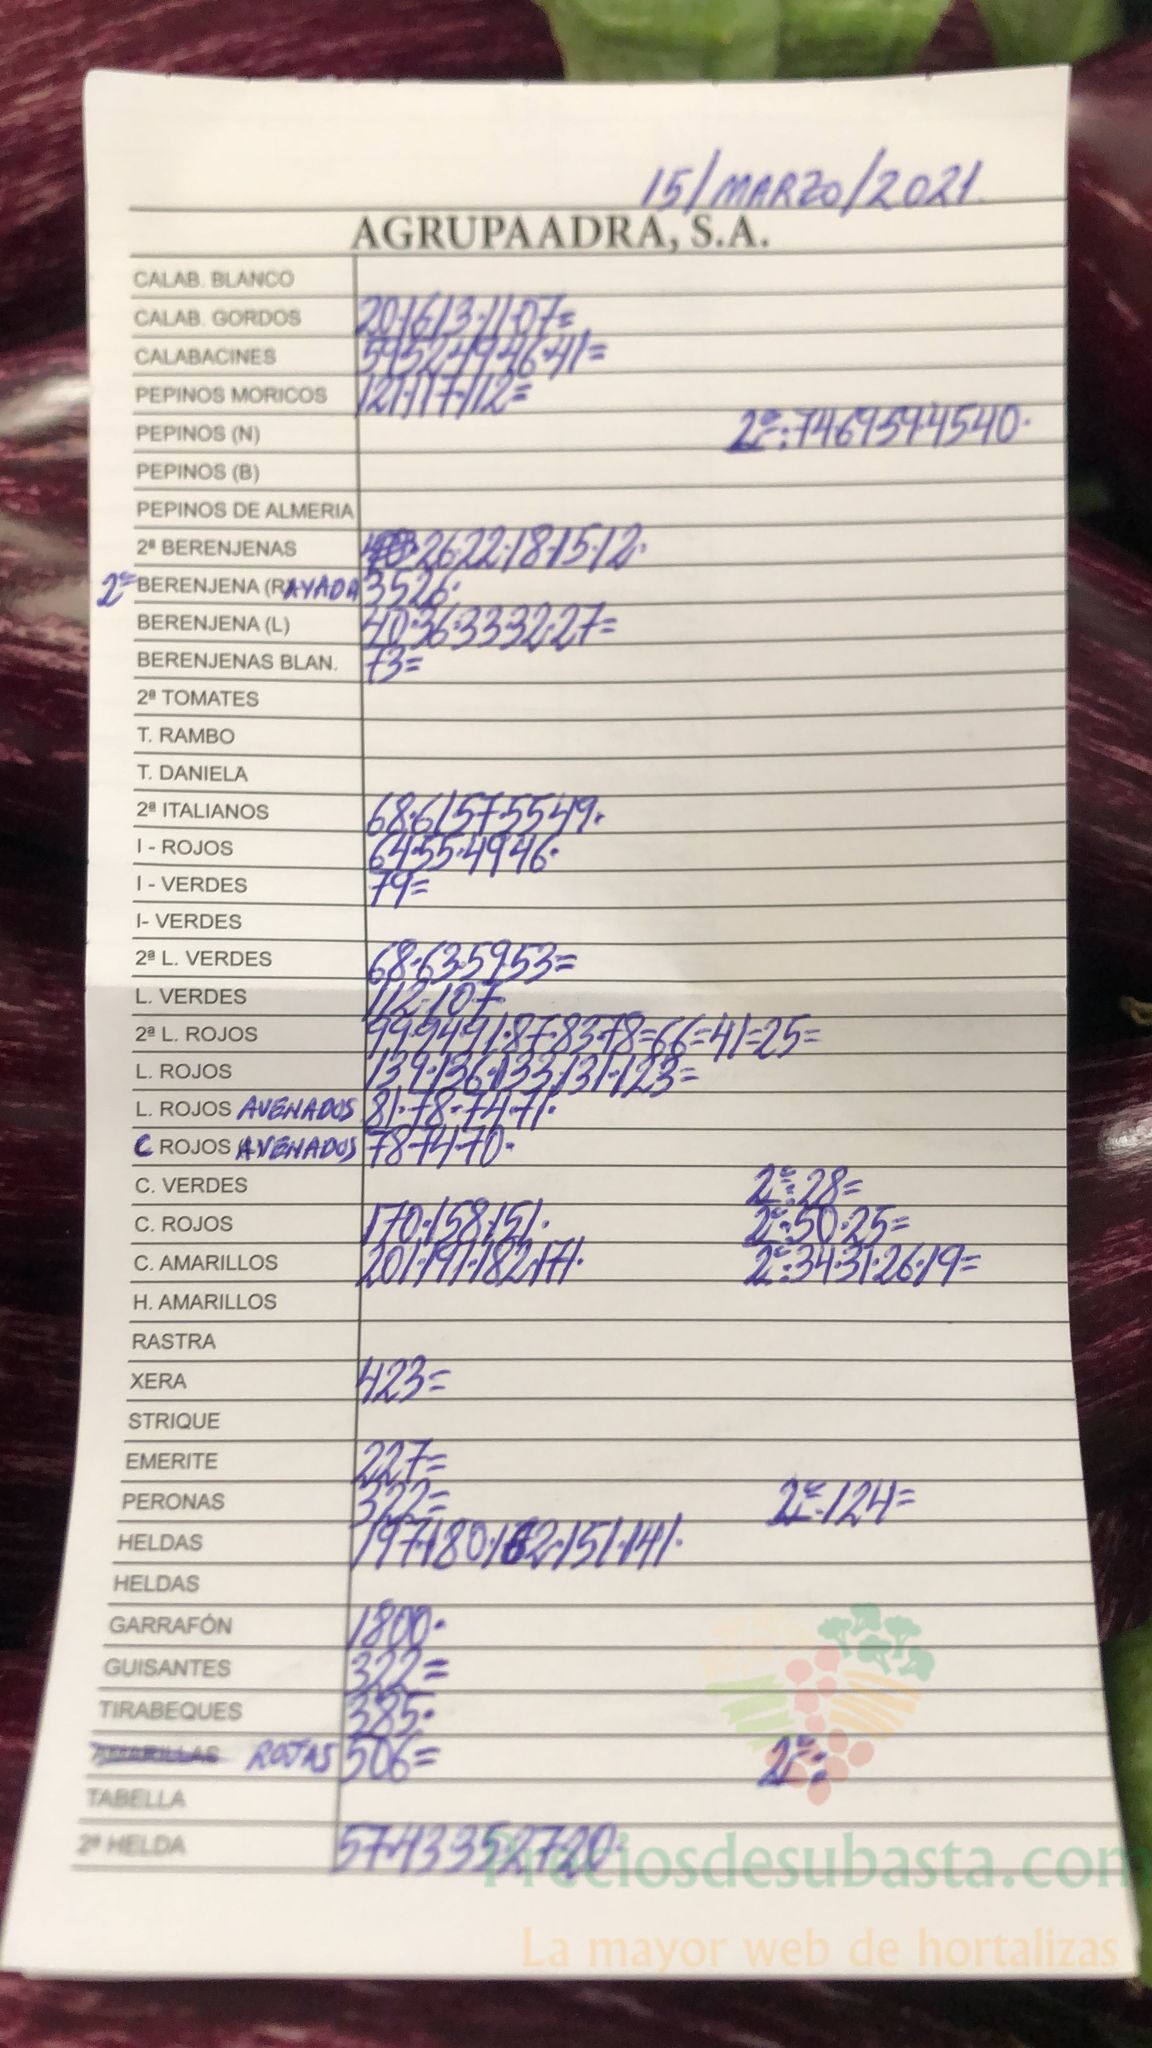 15/MARZO/2021.
AGRUPAADRA, S.A.
CALAB. BLANCO
CALAB. GORDOS 20·16·13·11·07=
CALABACINES 59·52·49·46·41=
PEPINOS MORICOS 121·117·112=
PEPINOS (N) 2ª:·74·69·59·45·40·
PEPINOS (B)
PEPINOS DE ALMERIA
2ª BERENJENAS 26·22·18·15·12·
2ª BERENJENA (RAYADA 35·26·
BERENJENA (L) 40·36·33·32·27=
BERENJENAS BLAN. 73=
2ª TOMATES
T. RAMBO
T. DANIELA
2ª ITALIANOS 68·61·57·55·49·
I - ROJOS 64·55·49·46·
I - VERDES 79=
I- VERDES
2ª L. VERDES 68·63·59·53=
L. VERDES 112·107·
2ª L. ROJOS 99·94·91·87·83·78=66=41=25=
L. ROJOS 139·136·133·131·123=
L. ROJOS AVENADOS 81·78·74·71·
C ROJOS AVENADOS 78·74·70·
C. VERDES 2ª:28=
C. ROJOS 170·158·151· 2ª:50·25=
C. AMARILLOS 201·191·182·171· 2ª:34·31·26·19=
H. AMARILLOS
RASTRA
XERA 423=
STRIQUE
EMERITE 227=
PERONAS 322= 2ª:124=
HELDAS 197·180·162·151·141·
HELDAS
GARRAFÓN 1800·
GUISANTES 322=
TIRABEQUES 385·
AMARILLAS ROJAS 506= 2ª:
TABELLA
2ª HELDA 57·43·35·27·20·
Preciosdesubasta.com
La mayor web de hortalizas